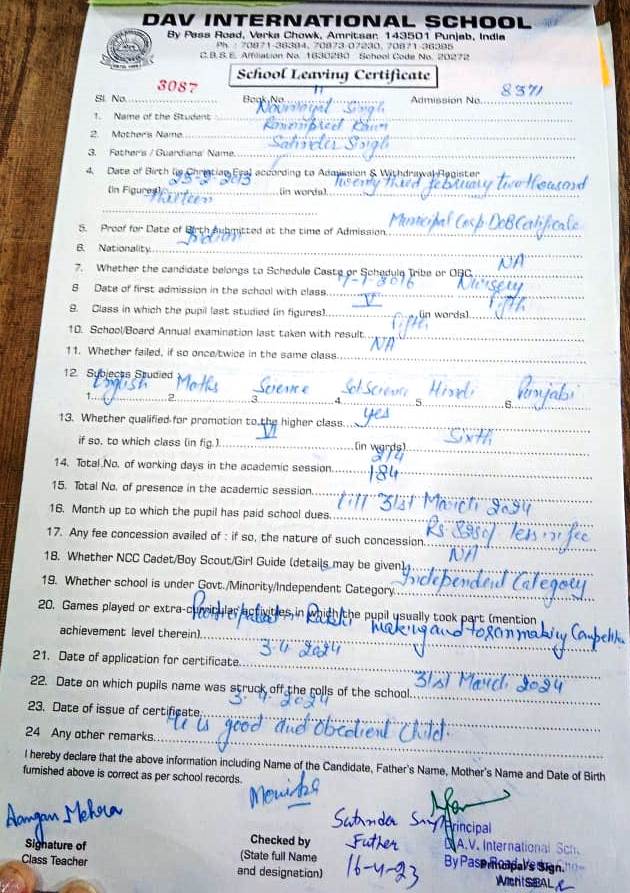 DAV INTERNATIONAL SCHOOL
By Pass Road, Verka Chowk, Amritsar. 143501 Punjab, India
Ph : 70871-36394, 70873-07230, 70871-36395
C.B.S.E. Affiliation No. 1630280 School Code No. 20272
School Leaving Certificate
Sl. No. 3087 Book No. 11 Admission No. 8371
1. Name of the Student Singh
2. Mother's Name
3. Father's / Guardians' Name Satinder Singh
4. Date of Birth (in Christian Era) according to Admission & Withdrawal Register
(In Figures) 23-2-2013 (in words) Twenty third february two thousand
thirteen
5. Proof for Date of Birth submitted at the time of Admission Municipal Corp DoB Certificate
6. Nationality Indian
7. Whether the candidate belongs to Schedule Caste or Schedule Tribe or OBC NA
8 Date of first admission in the school with class 2016 Nursery
9. Class in which the pupil last studied (in figures) V (in words) fifth
10. School/Board Annual examination last taken with result fifth
11. Whether failed, if so once/twice in the same class NA
12. Subjects Studied
1. English 2. Maths 3. Science 4. Sst Science 5. Hindi 6. Punjabi
13. Whether qualified for promotion to the higher class yes
if so, to which class (in fig.) VI (in words) Sixth
14. Total No. of working days in the academic session 214
15. Total No. of presence in the academic session 184
16. Month up to which the pupil has paid school dues till 31st March 2024
17. Any fee concession availed of : if so, the nature of such concession Rs less in fee
18. Whether NCC Cadet/Boy Scout/Girl Guide (details may be given) NA
19. Whether school is under Govt./Minority/Independent Category Independent Category
20. Games played or extra-curricular activities in which the pupil usually took part (mention
achievement level therein) Participated in Rakhi making and making
21. Date of application for certificate 3-4-2024
22. Date on which pupils name was struck off the rolls of the school 31st March 2024
23. Date of issue of certificate 3-4-2024
24 Any other remarks He is good and obedient Child.
I hereby declare that the above information including Name of the Candidate, Father's Name, Mother's Name and Date of Birth
furnished above is correct as per school records.
Mehra
Signature of
Class Teacher
Monika
Checked by
(State full Name
and designation)
Satinder Singh
Father
16-4-23
Principal
D.A.V. International Sch.
By Pass Road,
Principal's Sign.
SEAL